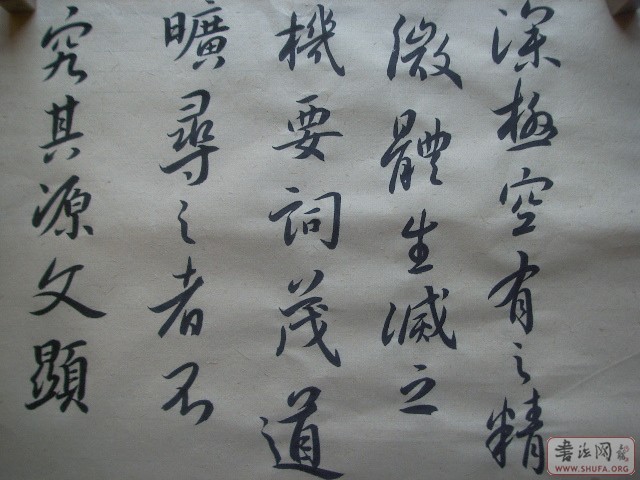 深極空有之精
微體生滅之
機要詞茂道
曠尋之者不
究其源文顯
書法网
WWW.SHUFA.ORG